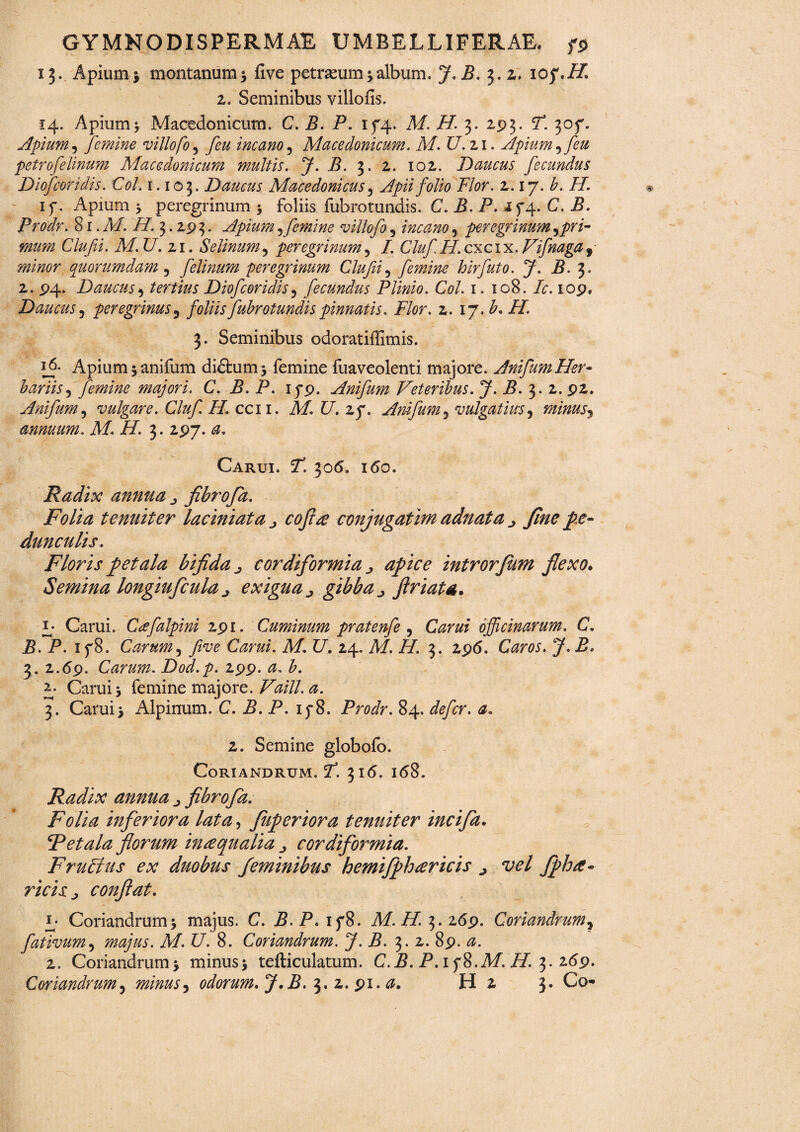 GYMNODISPERMAE UMBELLIFERAE. 59
13. Apium; montanum; ſive petræum; album. J. B. 3. 2. 105. H.
2. Seminibus villoſis.
14. Apium; Macedonicum. C. B. P. 154. M. H. 3. 293. T. 305.
Apium, ſemine villoſo, ſeu incano, Macedonicum. M. U. 21. Apium, ſeu
petroſelinum Macedonicum multis. J. B. 3. 2. 102. Daucus ſecundus
Dioſcoridis. Col. 1. 103. Daucus Macedonicus, Apii folio Flor. 2. 17. b. H.
15. Apium; peregrinum; foliis ſubrotundis. C. B. P. 154. C. B.
Prodr. 81. M. H. 3. 293. Apium, ſemine villoſo, incano, peregrinum, pri-
mum Cluſii. M. U. 21. Selinum, peregrinum, I. Cluſ. H. cxcix. Viſnaga,
minor quorumdam, ſelinum peregrinum Cluſii, ſemine hirſuto. J. B. 3.
2. 94. Daucus, tertius Dioſcoridis, ſecundus Plinio. Col. 1. 108. Ic. 109.
Daucus, peregrinus, foliis ſubrotundis pinnatis. Flor. 2. 17. b. H.
3. Seminibus odoratiſſimis.
16. Apium; aniſum dictum; ſemine ſuaveolenti majore. Aniſum Her-
bariis, ſemine majori. C. B. P. 159. Aniſum Veteribus. J. B. 3. 2. 92.
Aniſum, vulgare. Cluſ. H. ccii. M. U. 25. Aniſum, vulgatius, minus,
annuum. M. H. 3. 297. a.
CARUI. T. 306. 160.
Radix annua, fibroſa.
Folia tenuiter laciniata, coſtæ conjugatim adnata, ſine pe-
dunculis.
Floris petala bifida, cordiformia, apice introrſum flexo.
Semina longiuſcula, exigua, gibba, ſtriata.
1. Carui. Cæſalpini 291. Cuminum pratenſe, Carui officinarum. C.
B. P. 158. Carum, ſive Carui. M. U. 24. M. H. 3. 296. Caros. J. B.
3. 2. 69. Carum. Dod. p. 299. a. b.
2. Carui; ſemine majore. Vaill. a.
3. Carui; Alpinum. C. B. P. 158. Prodr. 84. deſcr. a.
2. Semine globoſo.
CORIANDRUM. T. 316. 168.
Radix annua, fibroſa.
Folia inferiora lata, ſuperiora tenuiter inciſa.
Petala florum inæqualia, cordiformia.
Fructus ex duobus ſeminibus hemiſphæricis, vel ſphæ-
ricis, conſtat.
1. Coriandrum; majus. C. B. P. 158. M. H. 3. 269. Coriandrum,
ſativum, majus. M. U. 8. Coriandrum. J. B. 3. 2. 89. a.
2. Coriandrum; minus; teſticulatum. C. B. P. 158. M. H. 3. 269.
Coriandrum, minus, odorum. J. B. 3. 2. 91. a. H 2 3. Co-